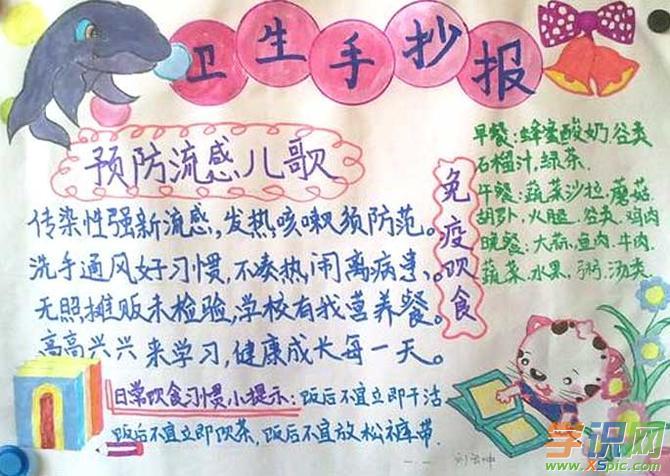 卫生手抄报
预防流感儿歌
传染性强新流感,发热咳嗽须防范。
洗手通风好习惯,不凑热闹离病毒。
无照摊贩未检验,学校有我营养餐。
高高兴兴来学习,健康成长每一天。
免疫饮食
早餐:蜂蜜酸奶.谷类
石榴汁,绿茶.
午餐:蔬菜沙拉.蘑菇.
胡萝卜.火腿.谷类.鸡肉
晚餐:大蒜.鱼肉.牛肉.
蔬菜.水果.粥.汤类.
日常饮食习惯小提示:饭后不宜立即干活
饭后不宜立即饮茶.饭后不宜放松裤带.
学识网
www.xspic.com